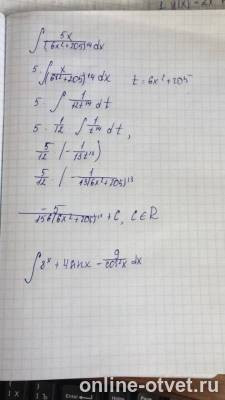 ∫ 5x/(6x²+205)¹⁴ dx
5 · ∫ x/(6x²+205)¹⁴ dx   t = 6x²+205
5 · ∫ 1/12t¹⁴ dt
5 · 1/12 ∫ 1/t¹⁴ dt,
5/12 · (−1/13t¹³)
5/12 · (−1/13(6x²+205)¹³
−5/156(6x²+205)¹³ + C, C ∈ R
∫ 8ˣ + 4sin x − 9/cos²x dx
online-otvet.ru